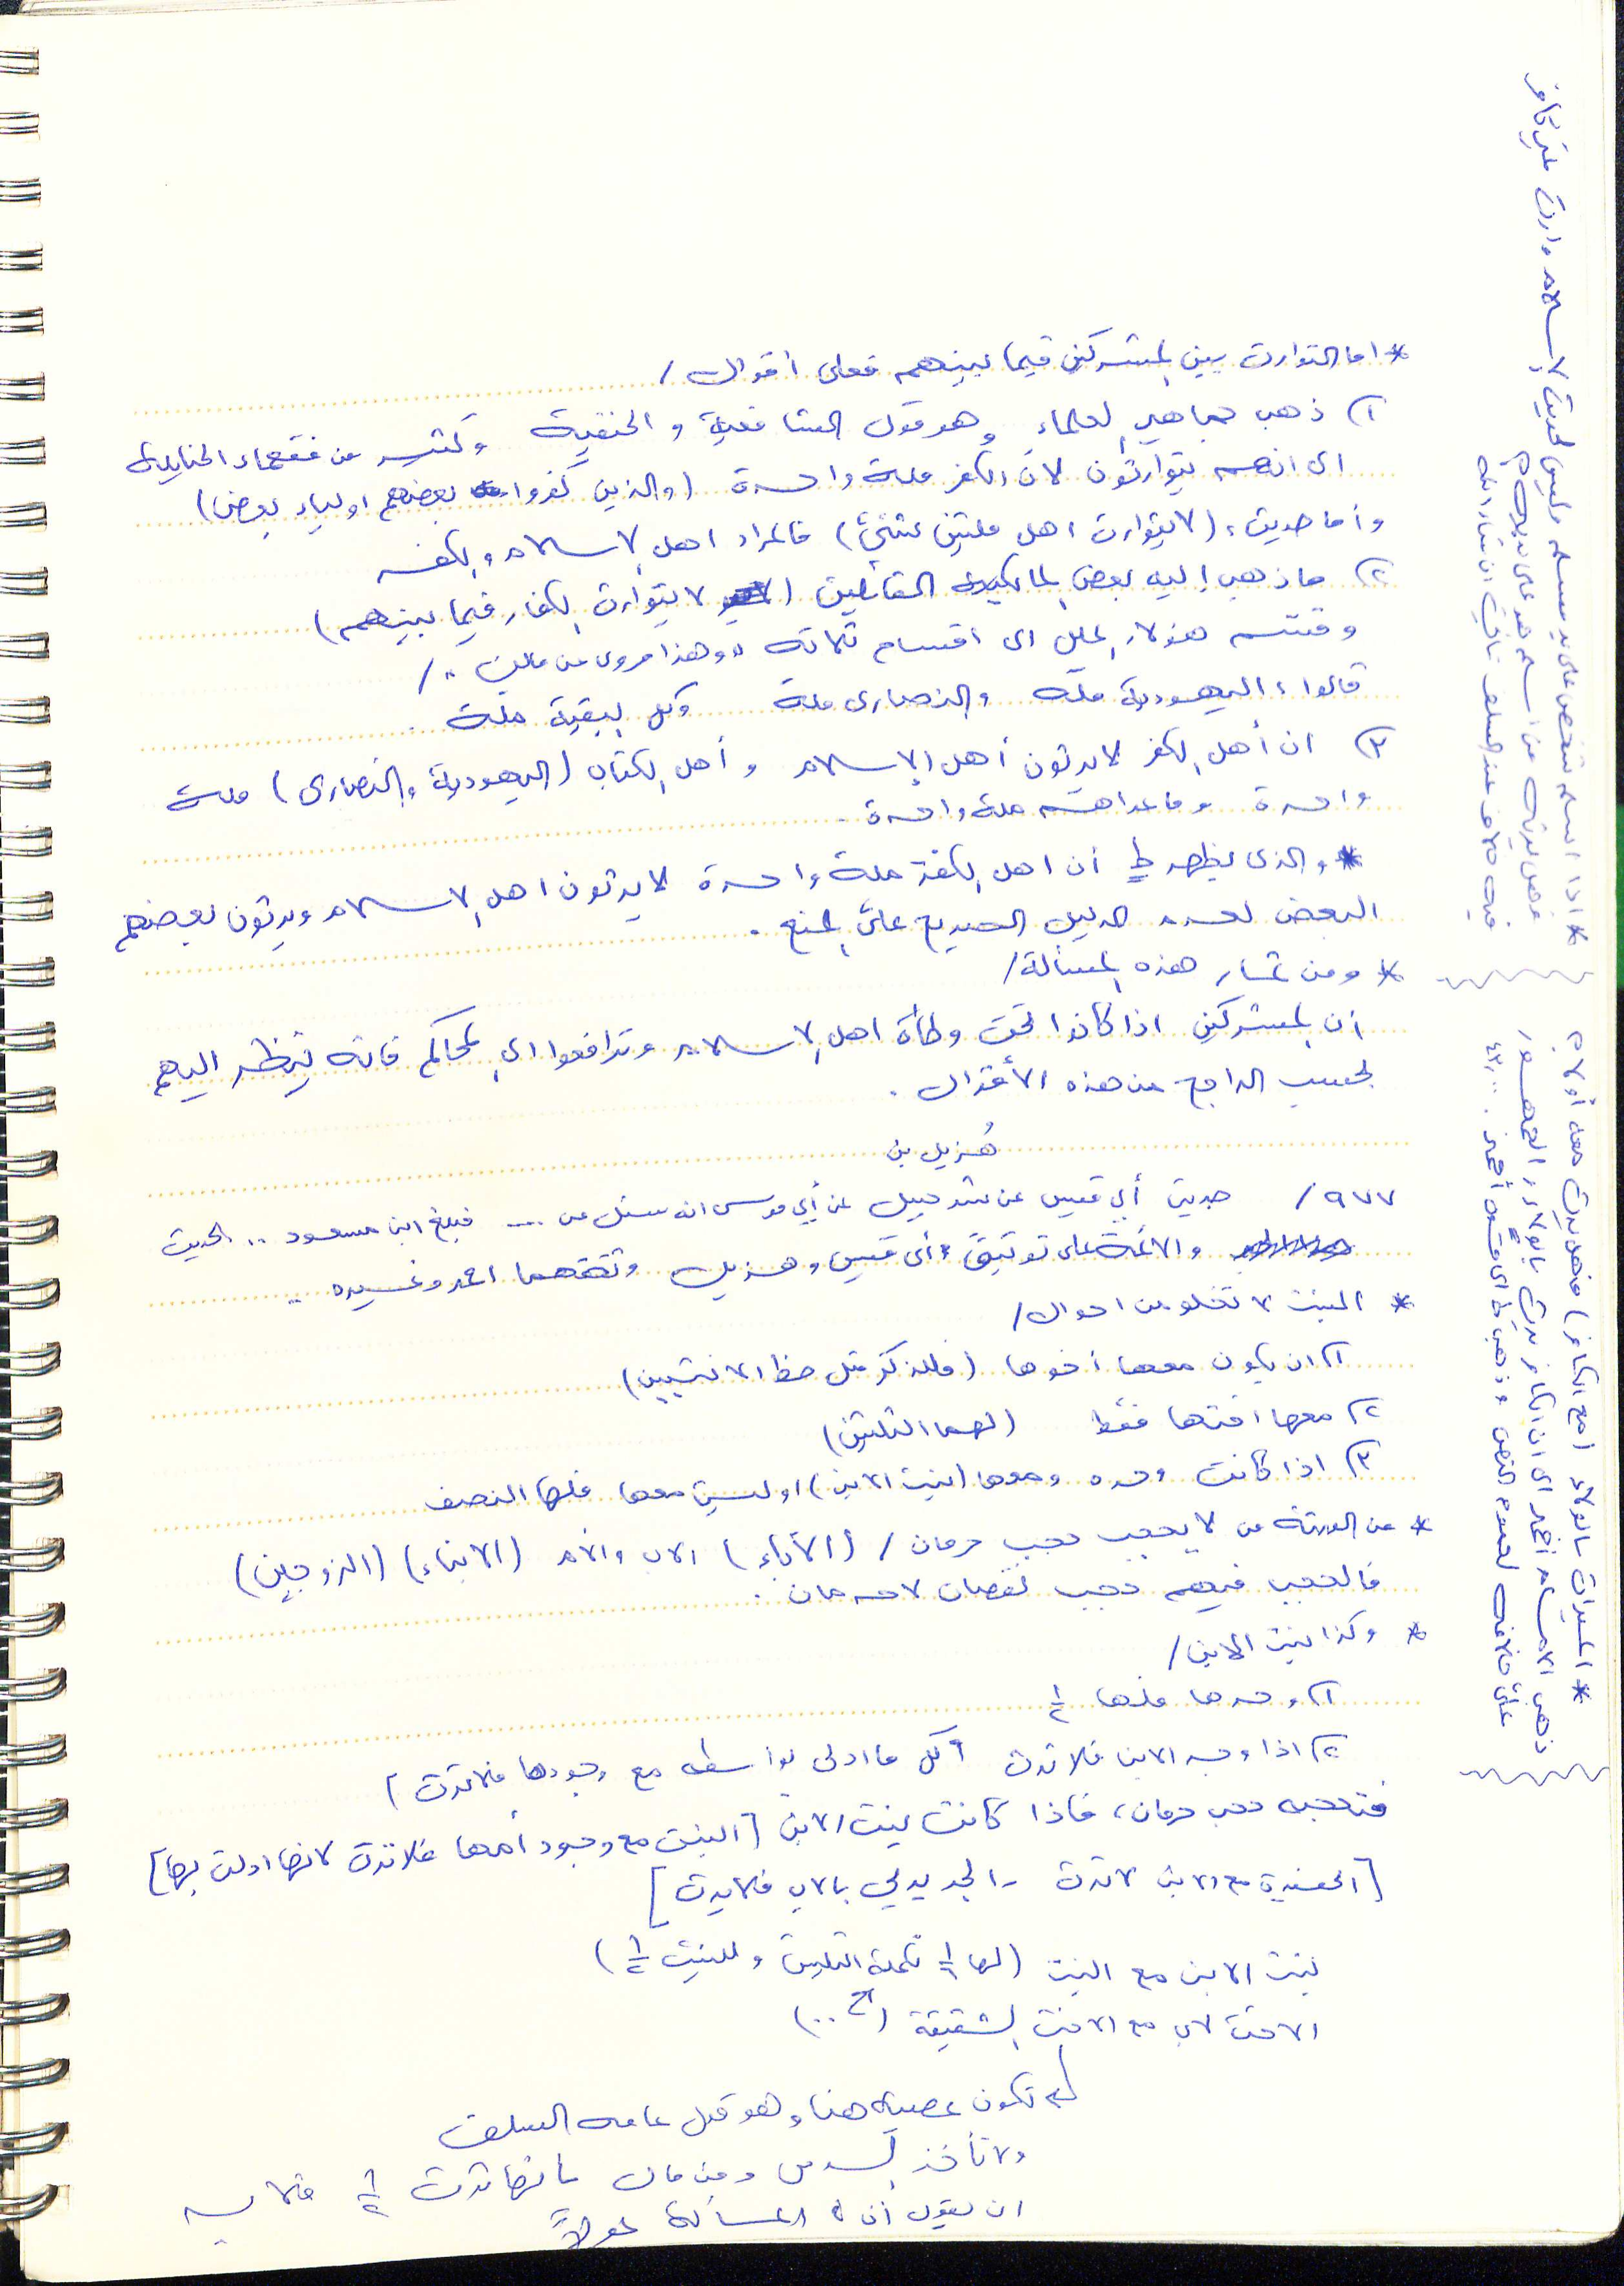 * اما التوارث بين المشركين فيما بينهم فعلى أقوال /
١) ذهب جماهير العلماء وهو قول الشافعية و الحنفية وكثير من فقهاء الحنابلة
الى انهم يتوارثون لان الكفر ملة واحدة (والذين كفروا بعضهم اولياء بعض)
وأما حديث، (لا يتوارث اهل ملتين شتىً) فالمراد اهل الاسلام والكفر
٢) ما ذهب إليه بعض المالكية القائلين (لا يتوارث الكفار فيما بينهم)
وقسم هؤلاء الملل الى اقسام ثلاثة ،، وهذا مروى عن مالك ،، /
قالوا، اليهودية ملة والنصارى ملة وكل البقية ملة .
٣) ان أهل الكفر لا يرثون أهل الإسلام و أهل الكتاب (اليهودية والنصارى) ملة
واحدة وما عداهم ملة واحدة .
* والذى يظهر لي أن اهل الكفر ملة واحدة لا يرثون اهل الاسلام ويرثون بعضهم
البعض لعدم الدليل الصريح على المنع .
* ومن ثمار هذه المسألة /
أن المشركين اذا كانوا تحت وطأة اهل الاسلام وترافعوا الى المحاكم فانه ينظر اليهم
بحسب الراجح من هذه الأقوال .
هُزيل بن
٩٧٧ / حديث أبي قيس عن شرحبيل عن أبي موسى انه سئل عن ... فبلغ ابن مسعود .. الحديث
والائمة على توثيق أبى قيس وهزيل وثقهما احمد وغيره ..
* البنت لا تخلو من احوال /
١) ان يكون معها أخوها (فللذكر مثل حظ الانثيين)
٢) معها اختها فقط (لهما الثلثين)
٣) اذا كانت وحده ومعها (بنت الابن) او ليس معها فلها النصف
* من الورثة من لا يحجب حجب حرمان / (الآباء) الاب والأم (الابناء) (الزوجين)
فالحجب فيهم حجب نقصان لا حرمان .
* وكذا بنت الابن /
١) وحدها فلها ١/٢
٢) اذا وجد الابن فلا ترث (كل ما ادلى بواسطه مع وجودها فلا ترث)
فتحجب حجب حرمان، فاذا كانت بنت الابن [البنت مع وجود أمها فلا ترث لانها ادلت بها]
[الحفيدة مع الابن لا ترث - الجد يدلي بالاب فلا يرث]
بنت الابن مع البنت (لها ١/٦ تكملة الثلثين وللبنت ١/٢)
الاخت لاب مع الاخت الشقيقة (الخ ..)
لم تكون عصبة هنا وهو قول عامه السلف
ولا تأخذ السدس ومن قال بانها ترث ١/٢ فلابد
ان يقول أن المسألة عولاً
* اذا اسلم شخص على يد مسلم وليس لحديث الاسلام وارث غير كافر
فهل يرثه من اسلم هو على يديه؟
فيه خلاف عند السلف تأتي ان شاء الله
* الميراث بالولاء (مع الكافر) فهل يرث معه أولا؟
ذهب الامام أحمد الى ان الكافر يرث بالولاء والجمهور
على خلافه لعموم النص وذهب الى قول أحمد